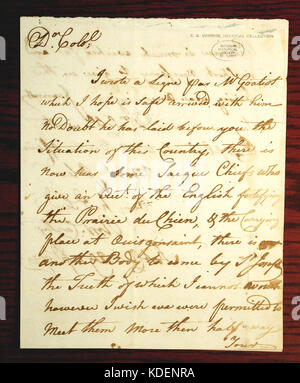 Dr Colol,
I wrote a Ligne Par Mr Gratiot
which I hope is safe arrived with him
no Doubt he has laid before you the
Situation of the Country, there is
now hear Some Jacque Chiefs who
give an Act. of the English fortifying
the Prairie du Chien, & the Carrying
place at Ouisconsint, there is
another Body to come by St Joseph
the Truth of which I cannot
however I wish we were permitted to
meet them more then half way
Your
alamy
KDENRA